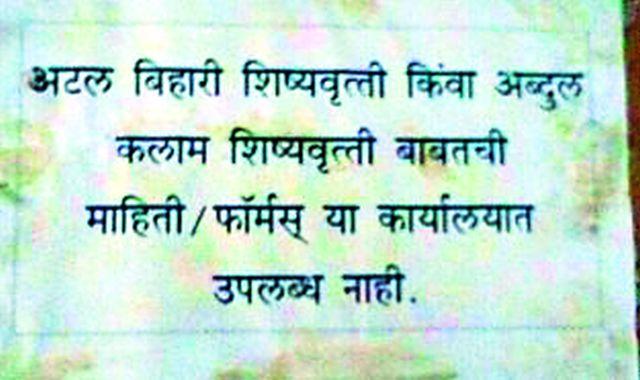 अटल बिहारी शिष्यवृत्ती किंवा अब्दुल
कलाम शिष्यवृत्ती बाबतची
माहिती/फॉर्मस् या कार्यालयात
उपलब्ध नाही.